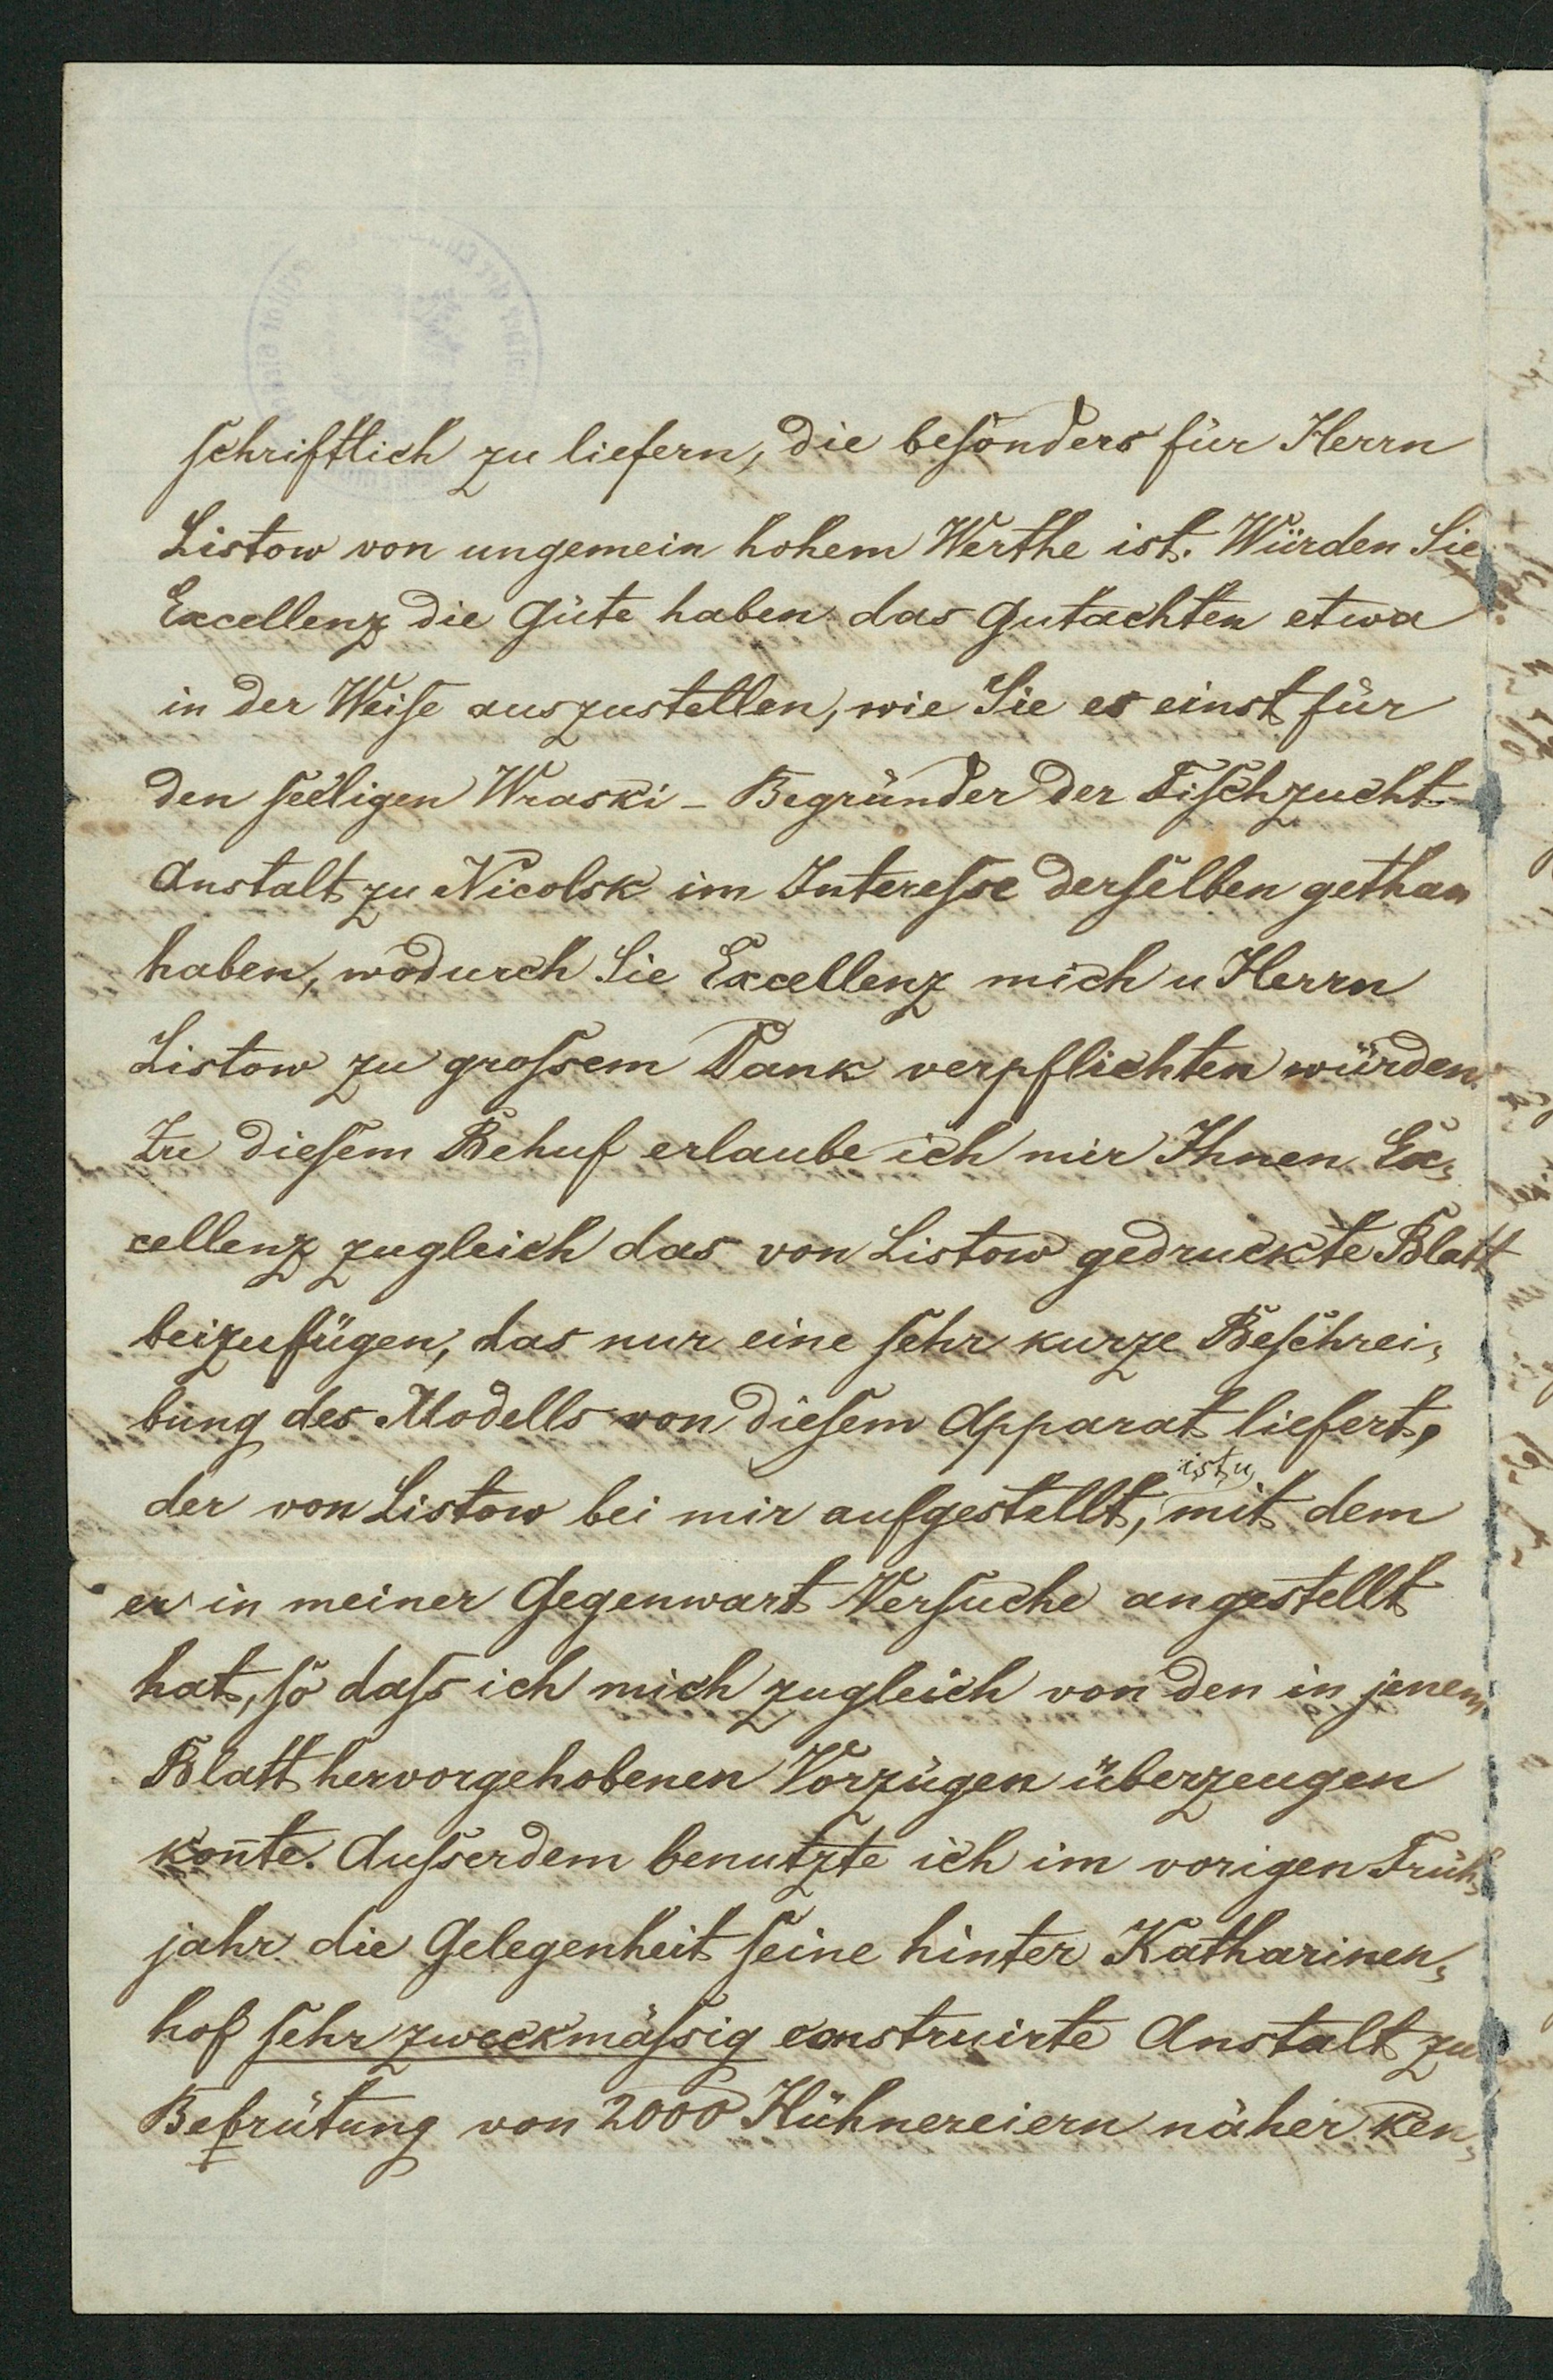 schriftlich zu liefern, die besonders für Herrn
Listow von ungemein hohem Werthe ist. Würden Sie
Excellenz die Güte haben das Gutachten etwa
in der Weise auszustellen, wie Sie es einst für
den seeligen Wraski - Begründer der Fischzucht-
Anstalt zu Nicolsk im Interesse derselben gethan
haben, wodurch Sie Excellenz mich u Herrn
Listow zu grossem Dank verpflichten würden.
Zu diesem Behuf erlaube ich mir Ihnen Ex-
cellenz zugleich das von Listow gedruckte Blatt
beizufügen, das nur eine sehr kurze Beschrei-
bung des Modells von diesem Apparat liefert,
der von Listow bei mir aufgestellt, ist u mit dem
er in meiner Gegenwart Versuche angestellt
hat, so dass ich mich zugleich von den in jenem
Blatt hervorgehobenen Vorzügen überzeugen
kon̄te. Ausserdem benutzte ich im vorigen Früh-
jahr die Gelegenheit seine hinter Katharinen-
hof sehr zweckmässig construirte Anstalt zu
Bebrütung von 2000 Hühnereiern näher ken-